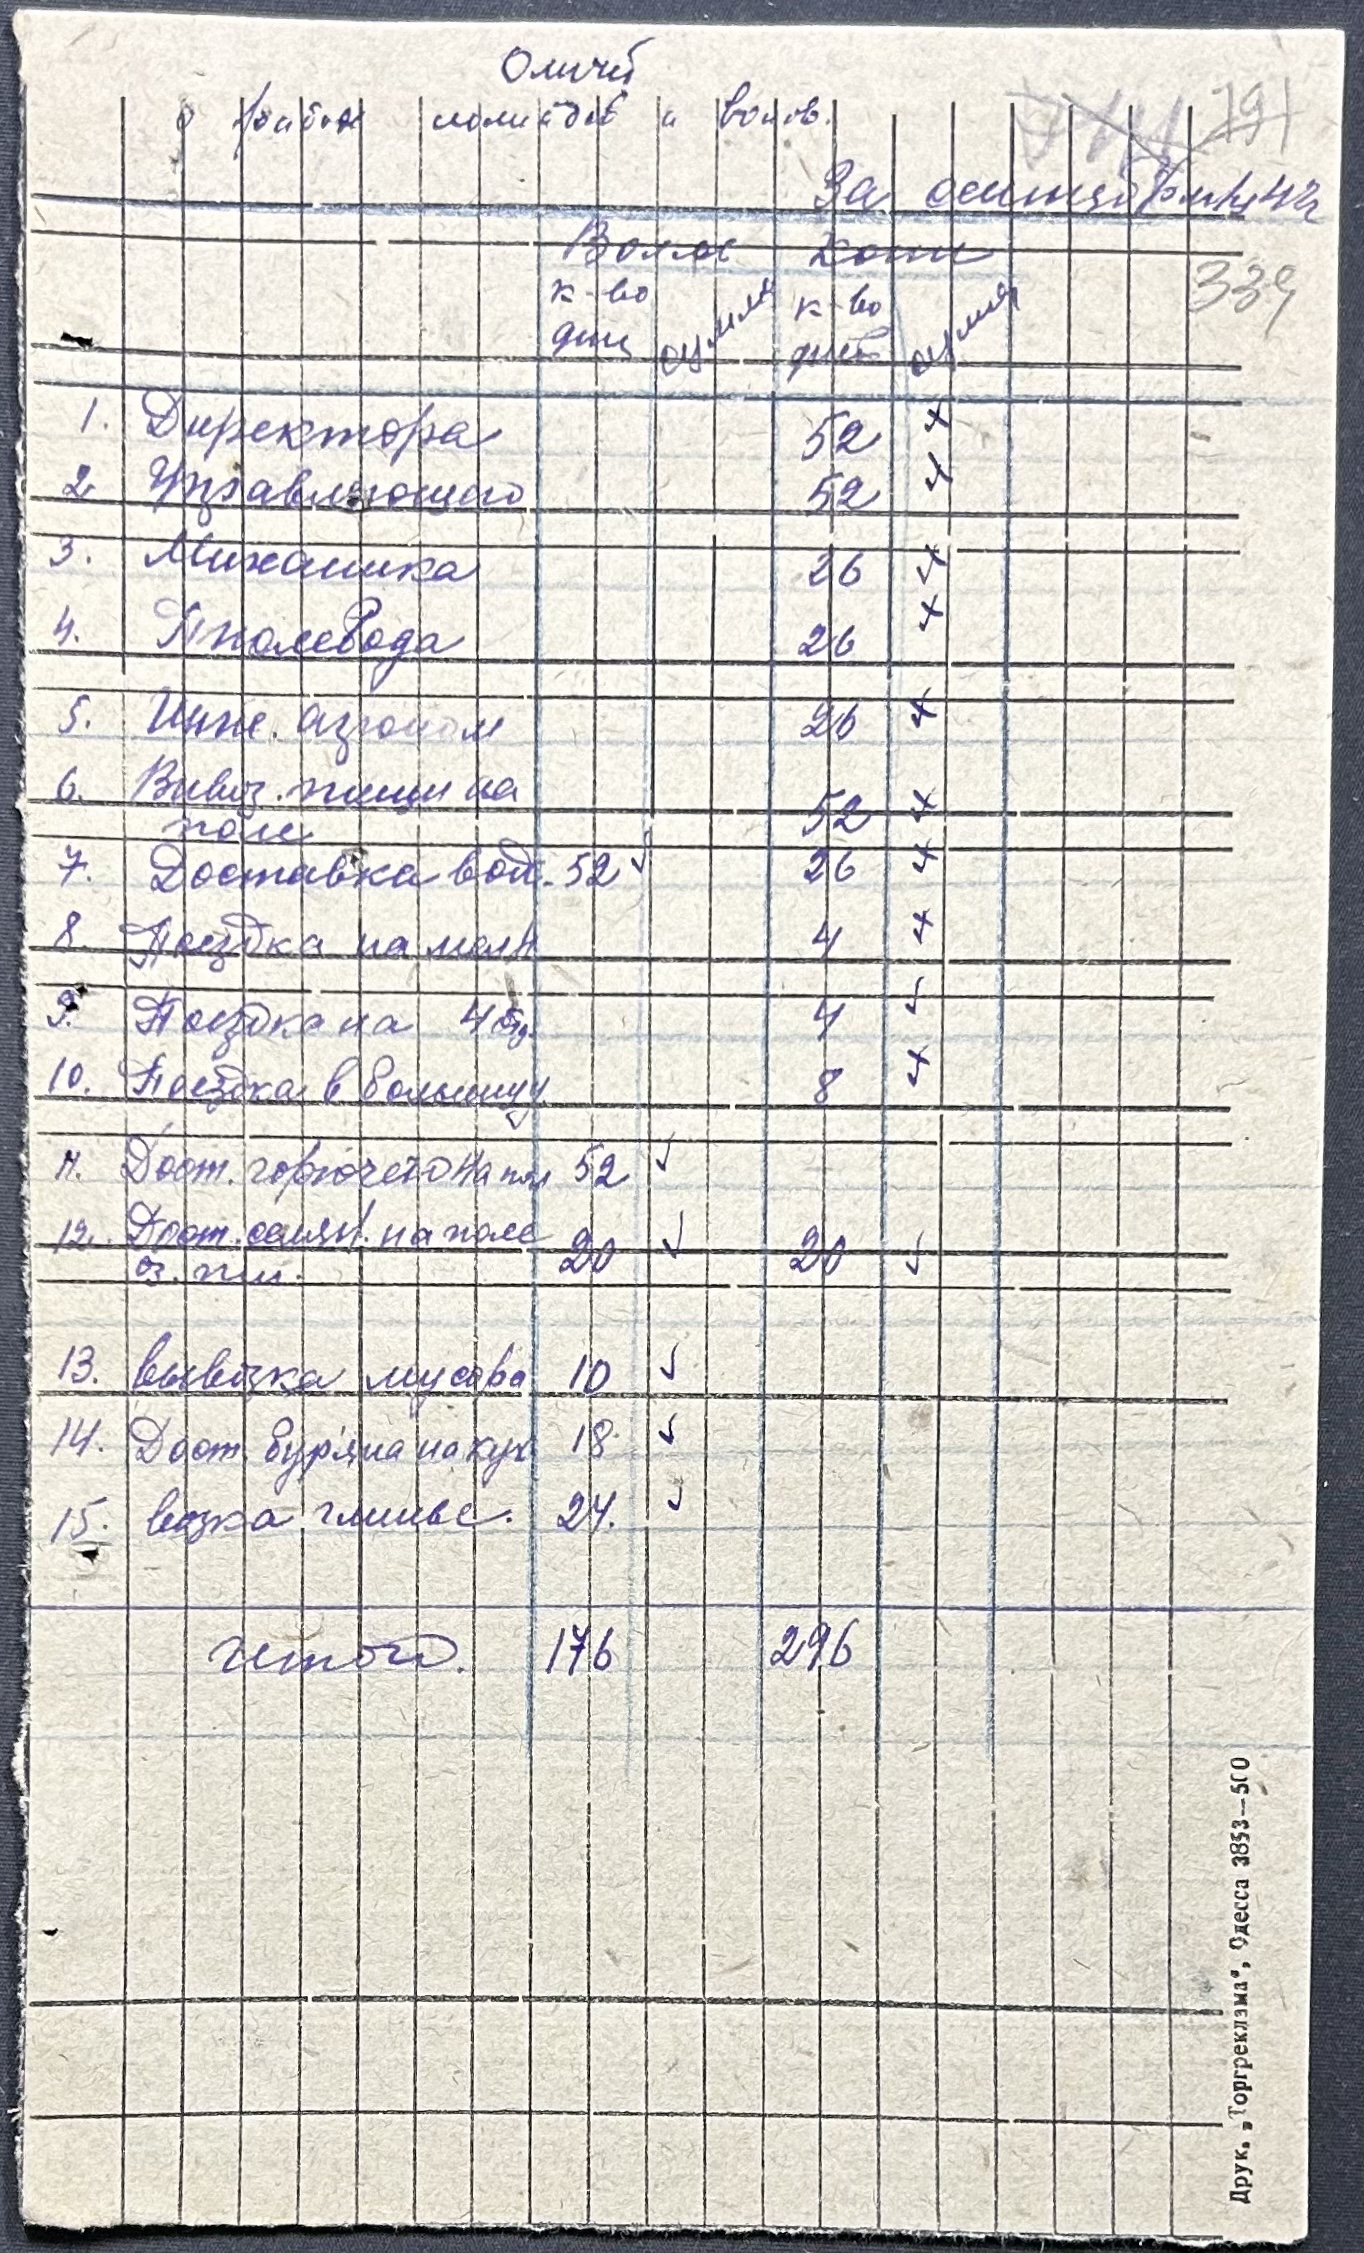 Отчет
о работе лошадей и волов.
191
За сентябр м-ц 42 г
339
Волы Кони
к-во дни сумма к-во дней сумма
1. Директора 52 x
2. Управляющего 52 x
3. Миханика 26 x
4. Полевода 26 x
5. Инж. агроном 26 x
6. Вывоз. пищи на
поле 52 x
7. Доставка вод. 52 ✓ 26 x
8. Поездка на мелн 4 x
9. Поездка на 4 отд. 4 ✓
10. Поездка в больницу 8 x
11. Дост. горючего на пол 52 ✓
12. Дост. семян. на поле 20 ✓ 20 ✓
оз. пш.
13. вывозка мусора 10 ✓
14. Дост. бурьяна на кух 18 ✓
15. возка глины. 24. ✓
Итого. 176 296
Друк. „Торгреклама", Одесса 3853—500